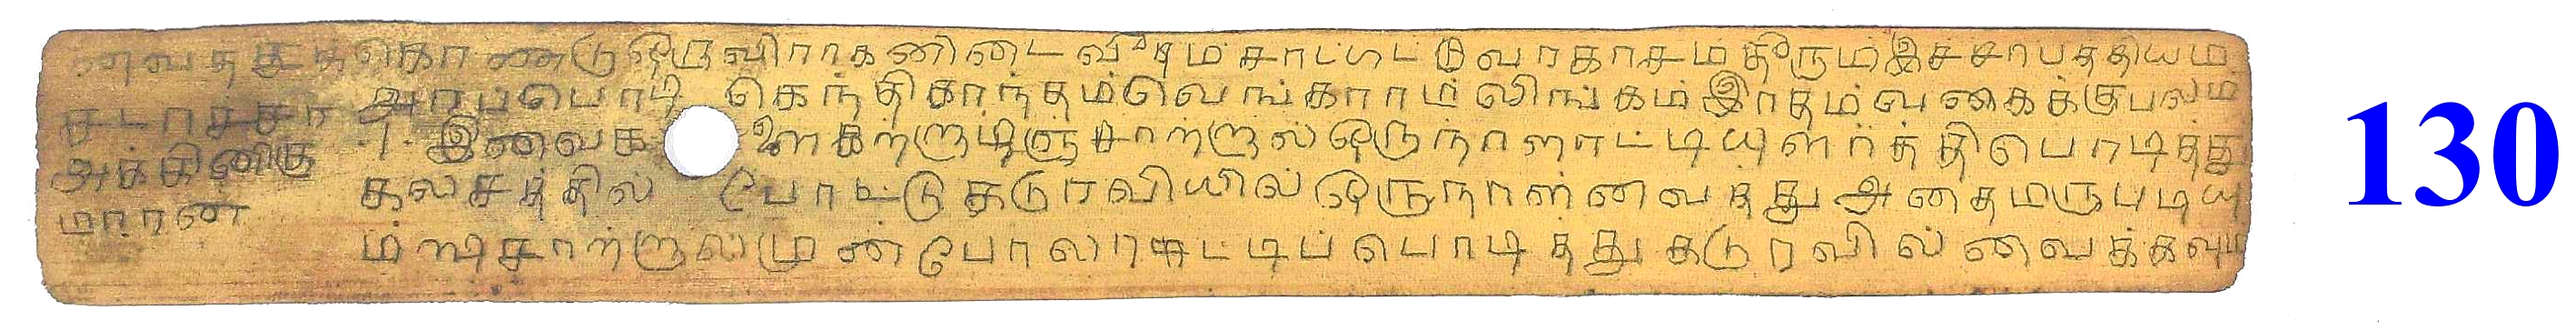 னவத்துத்கொண்டுஒருவிராகனிடைவீதம்சாட்டட்டுவராகாசம்தீரும்இச்சாபத்தியம்
சூடாரச்சா அரப்பொடி கெந்திகாந்தம்வெங்காரம்லிங்கம்இரதம்வகைக்குபலம்
அக்கினிகு ।. இவைக ளைகற்றாழிஞ்சாற்றால்ஒருநாளாட்டியுளர்த்திபொடித்து
மாரன் கலசத்தில் போட்டுகடுரவியில்ஒருநாள்வைத்துஅதைமருபடியு
ம்ஷிசாற்றால்முன்போலாட்டிப்பொடித்துகடுரவில்வைக்கவும்
130